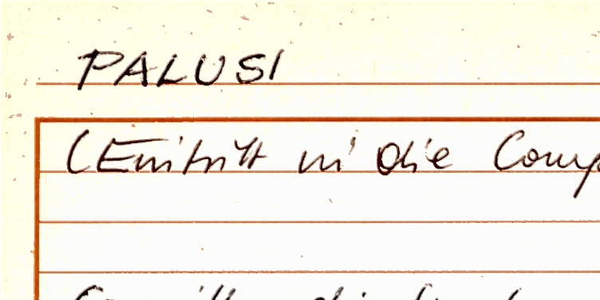 PALUSI
(Eintritt in die Comp